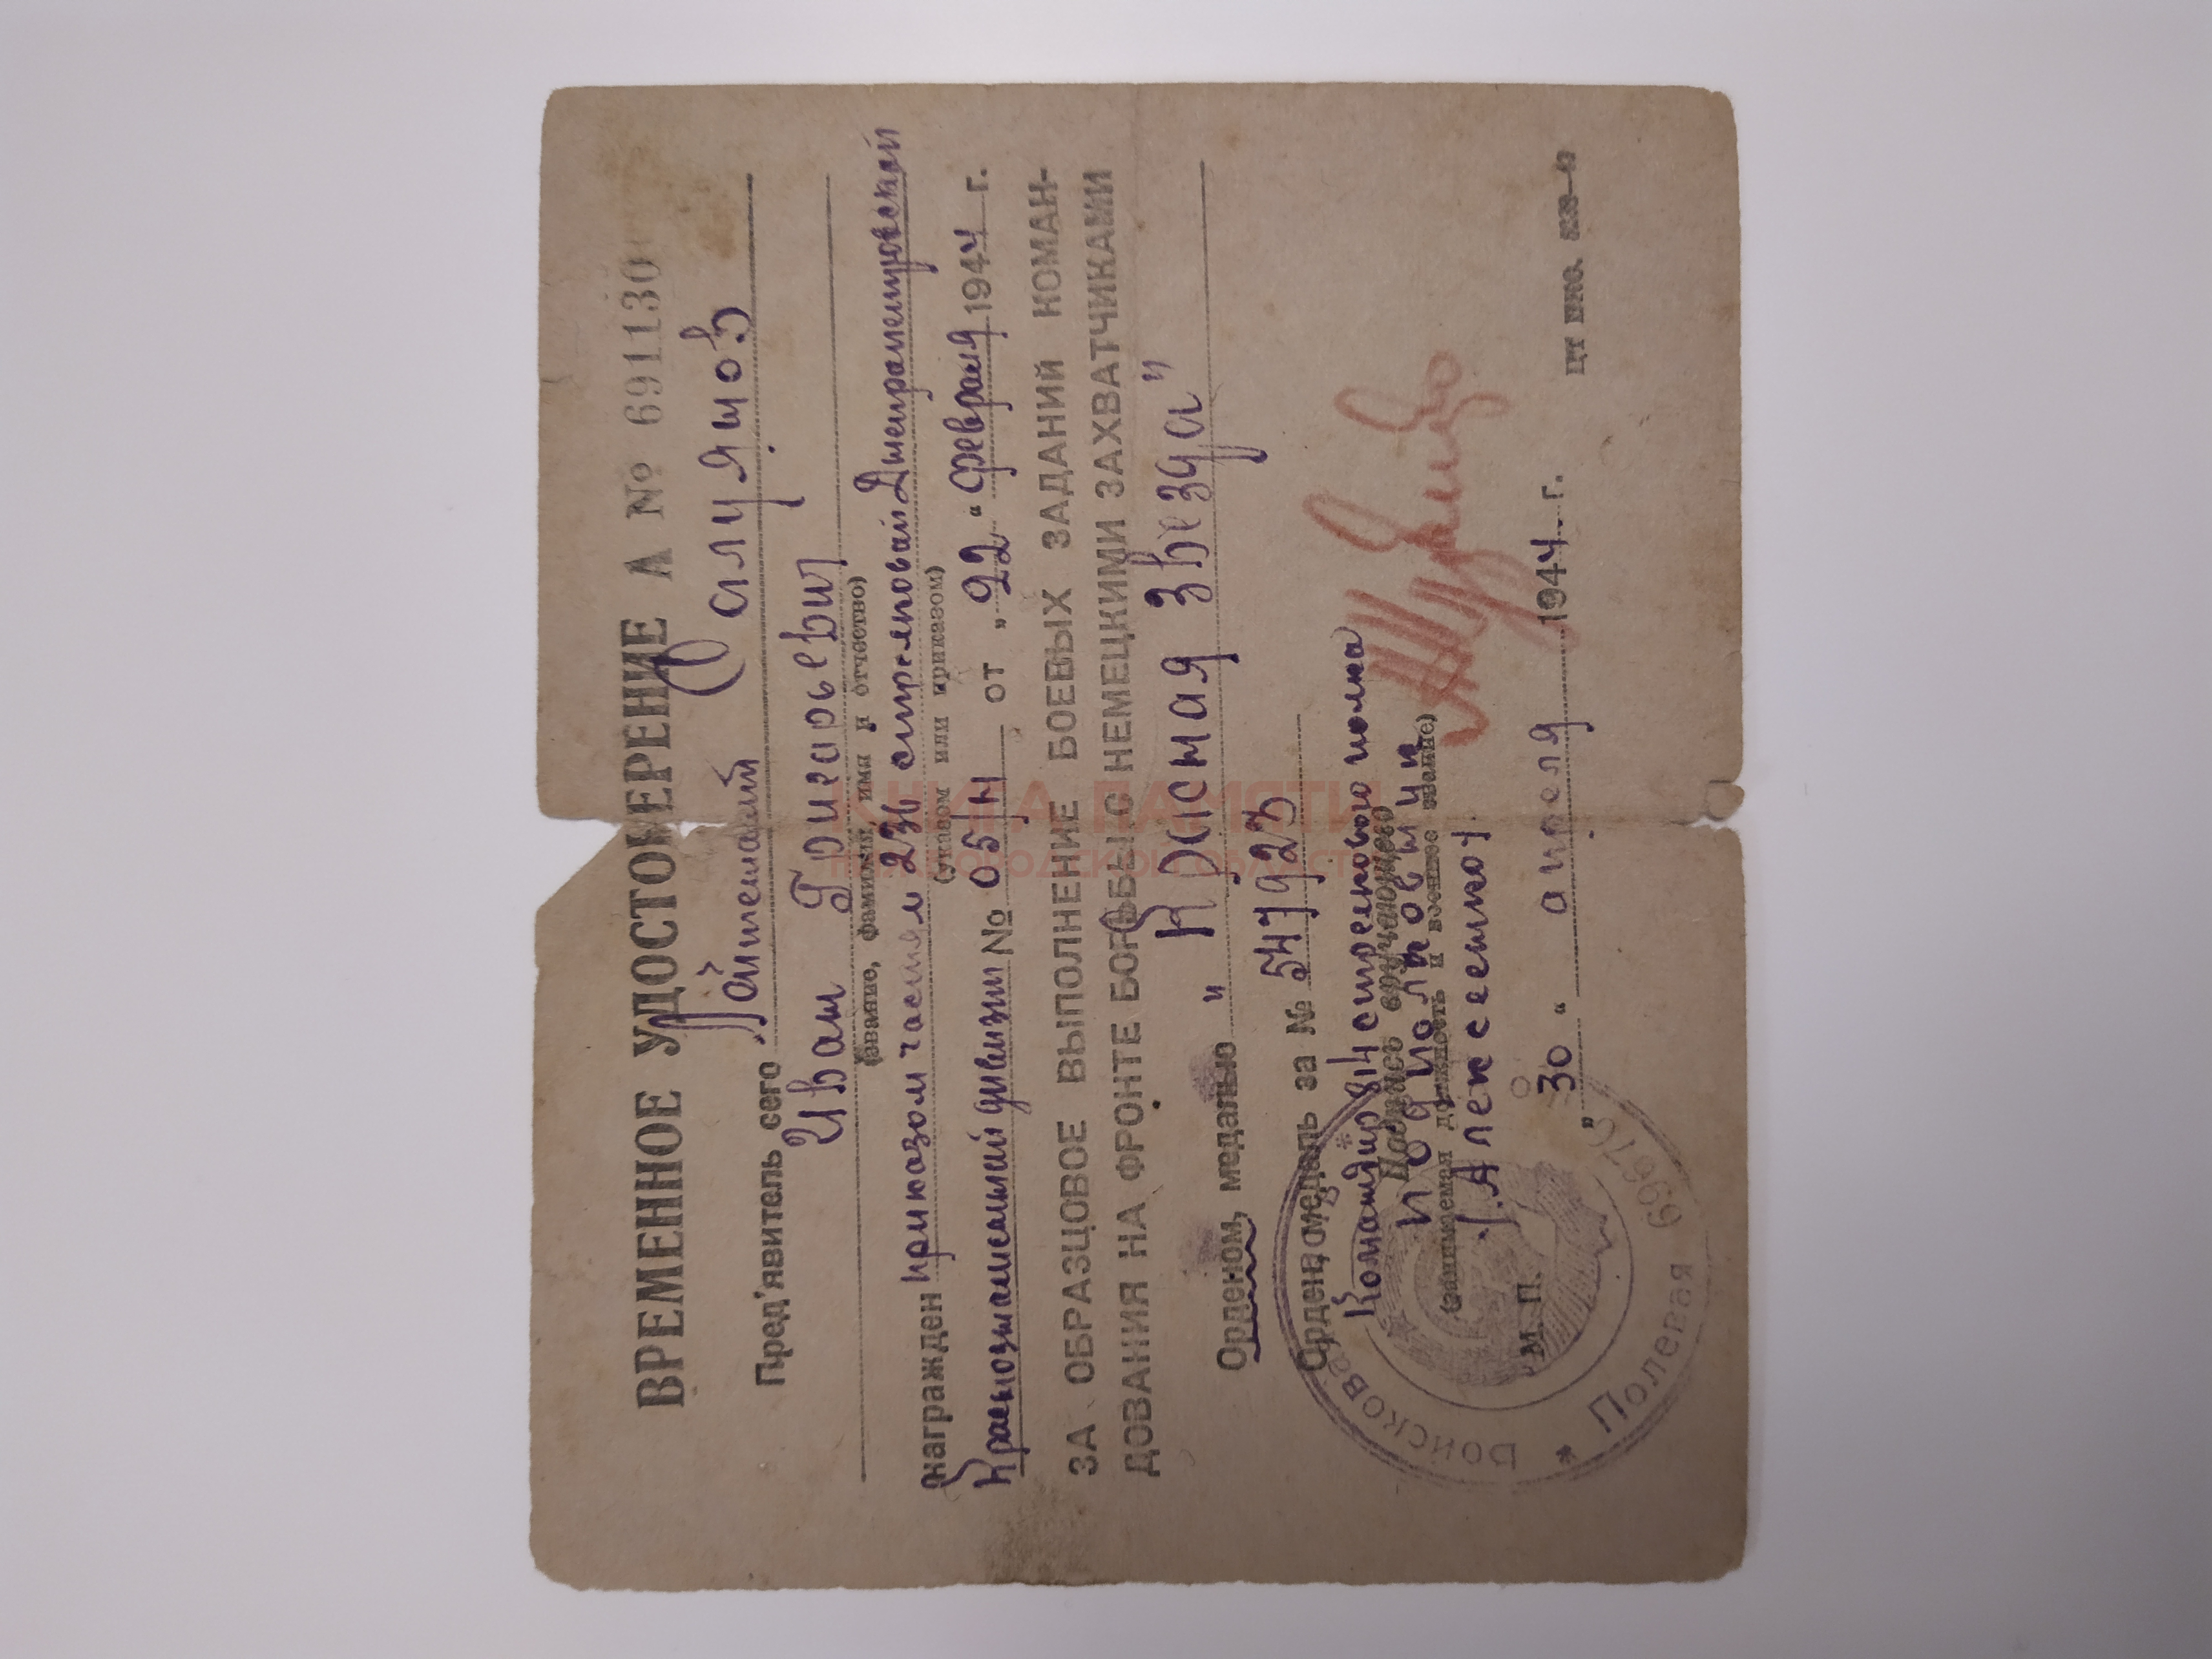 ВРЕМЕННОЕ УДОСТОВЕРЕНИЕ А № 691130
Пред'явитель сего Лейтенант Салуятов
Иван Григорьевич
(звание, фамилия, имя и отчество)
награжден приказом частям 236 стрелковой Днепропетровской
(указом или приказом)
Краснознаменной дивизии № 05/н от „22“ февраля 1944 г.
ЗА ОБРАЗЦОВОЕ ВЫПОЛНЕНИЕ БОЕВЫХ ЗАДАНИЙ КОМАН-
ДОВАНИЯ НА ФРОНТЕ БОРЬБЫ С НЕМЕЦКИМИ ЗАХВАТЧИКАМИ
Орденом, медалью "Красная Звезда"
Орден, медаль за № 547923
Командир 814 стрелкового полка
Подпись вручающего
подполковник
(занимаемая должность и военное звание)
/Алексеенко/
М. П. „30“ апреля 1944 г.
ЦТ НКО.
Войсковая
* Полевая
КНИГА ПАМЯТИ
НИЖЕГОРОДСКОЙ ОБЛАСТИ